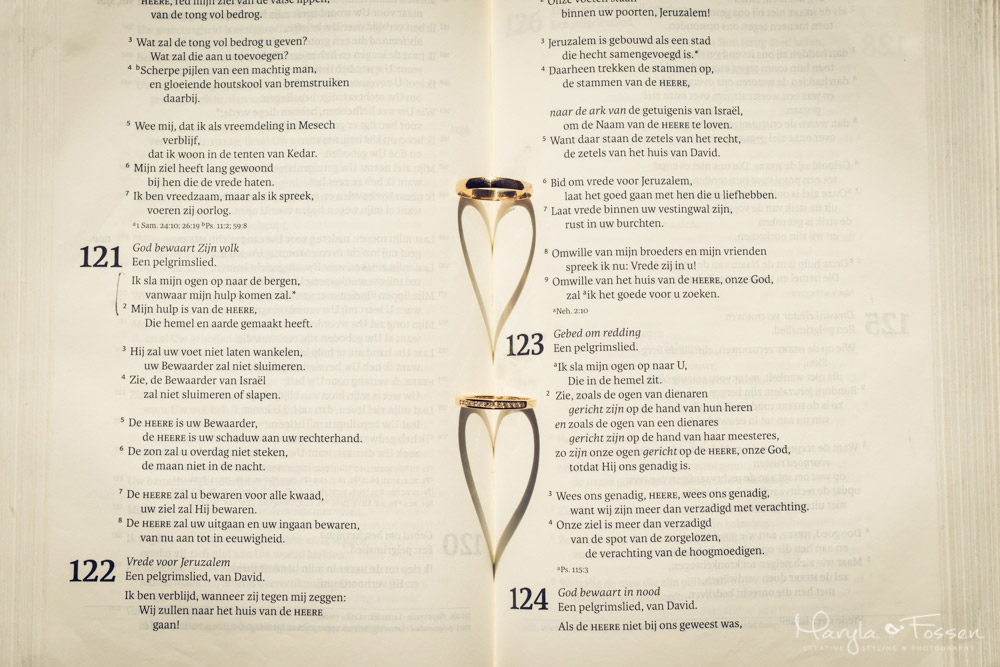 HEERE, red mijn ziel van de valse lippen,
van de tong vol bedrog.
3 Wat zal de tong vol bedrog u geven?
Wat zal die aan u toevoegen?
4 bScherpe pijlen van een machtig man,
en gloeiende houtskool van bremstruiken
daarbij.
5 Wee mij, dat ik als vreemdeling in Mesech
verblijf,
dat ik woon in de tenten van Kedar.
6 Mijn ziel heeft lang gewoond
bij hen die de vrede haten.
7 Ik ben vreedzaam, maar als ik spreek,
voeren zij oorlog.
a1 Sam. 24:10; 26:19 bPs. 11:2; 59:8
121 God bewaart Zijn volk
Een pelgrimslied.
Ik sla mijn ogen op naar de bergen,
vanwaar mijn hulp komen zal.*
2 Mijn hulp is van de HEERE,
Die hemel en aarde gemaakt heeft.
3 Hij zal uw voet niet laten wankelen,
uw Bewaarder zal niet sluimeren.
4 Zie, de Bewaarder van Israël
zal niet sluimeren of slapen.
5 De HEERE is uw Bewaarder,
de HEERE is uw schaduw aan uw rechterhand.
6 De zon zal u overdag niet steken,
de maan niet in de nacht.
7 De HEERE zal u bewaren voor alle kwaad,
uw ziel zal Hij bewaren.
8 De HEERE zal uw uitgaan en uw ingaan bewaren,
van nu aan tot in eeuwigheid.
122 Vrede voor Jeruzalem
Een pelgrimslied, van David.
Ik ben verblijd, wanneer zij tegen mij zeggen:
Wij zullen naar het huis van de HEERE
gaan!
2 Onze voeten staan
binnen uw poorten, Jeruzalem!
3 Jeruzalem is gebouwd als een stad
die hecht samengevoegd is.*
4 Daarheen trekken de stammen op,
de stammen van de HEERE,
naar de ark van de getuigenis van Israël,
om de Naam van de HEERE te loven.
5 Want daar staan de zetels van het recht,
de zetels van het huis van David.
6 Bid om vrede voor Jeruzalem,
laat het goed gaan met hen die u liefhebben.
7 Laat vrede binnen uw vestingwal zijn,
rust in uw burchten.
8 Omwille van mijn broeders en mijn vrienden
spreek ik nu: Vrede zij in u!
9 Omwille van het huis van de HEERE, onze God,
zal aik het goede voor u zoeken.
aNeh. 2:10
123 Gebed om redding
Een pelgrimslied.
aIk sla mijn ogen op naar U,
Die in de hemel zit.
2 Zie, zoals de ogen van dienaren
gericht zijn op de hand van hun heren
en zoals de ogen van een dienares
gericht zijn op de hand van haar meesteres,
zo zijn onze ogen gericht op de HEERE, onze God,
totdat Hij ons genadig is.
3 Wees ons genadig, HEERE, wees ons genadig,
want wij zijn meer dan verzadigd met verachting.
4 Onze ziel is meer dan verzadigd
van de spot van de zorgelozen,
de verachting van de hoogmoedigen.
aPs. 115:3
124 God bewaart in nood
Een pelgrimslied, van David.
Als de HEERE niet bij ons geweest was,
Maryla Fossen
CREATIVE STYLING & PHOTOGRAPHY